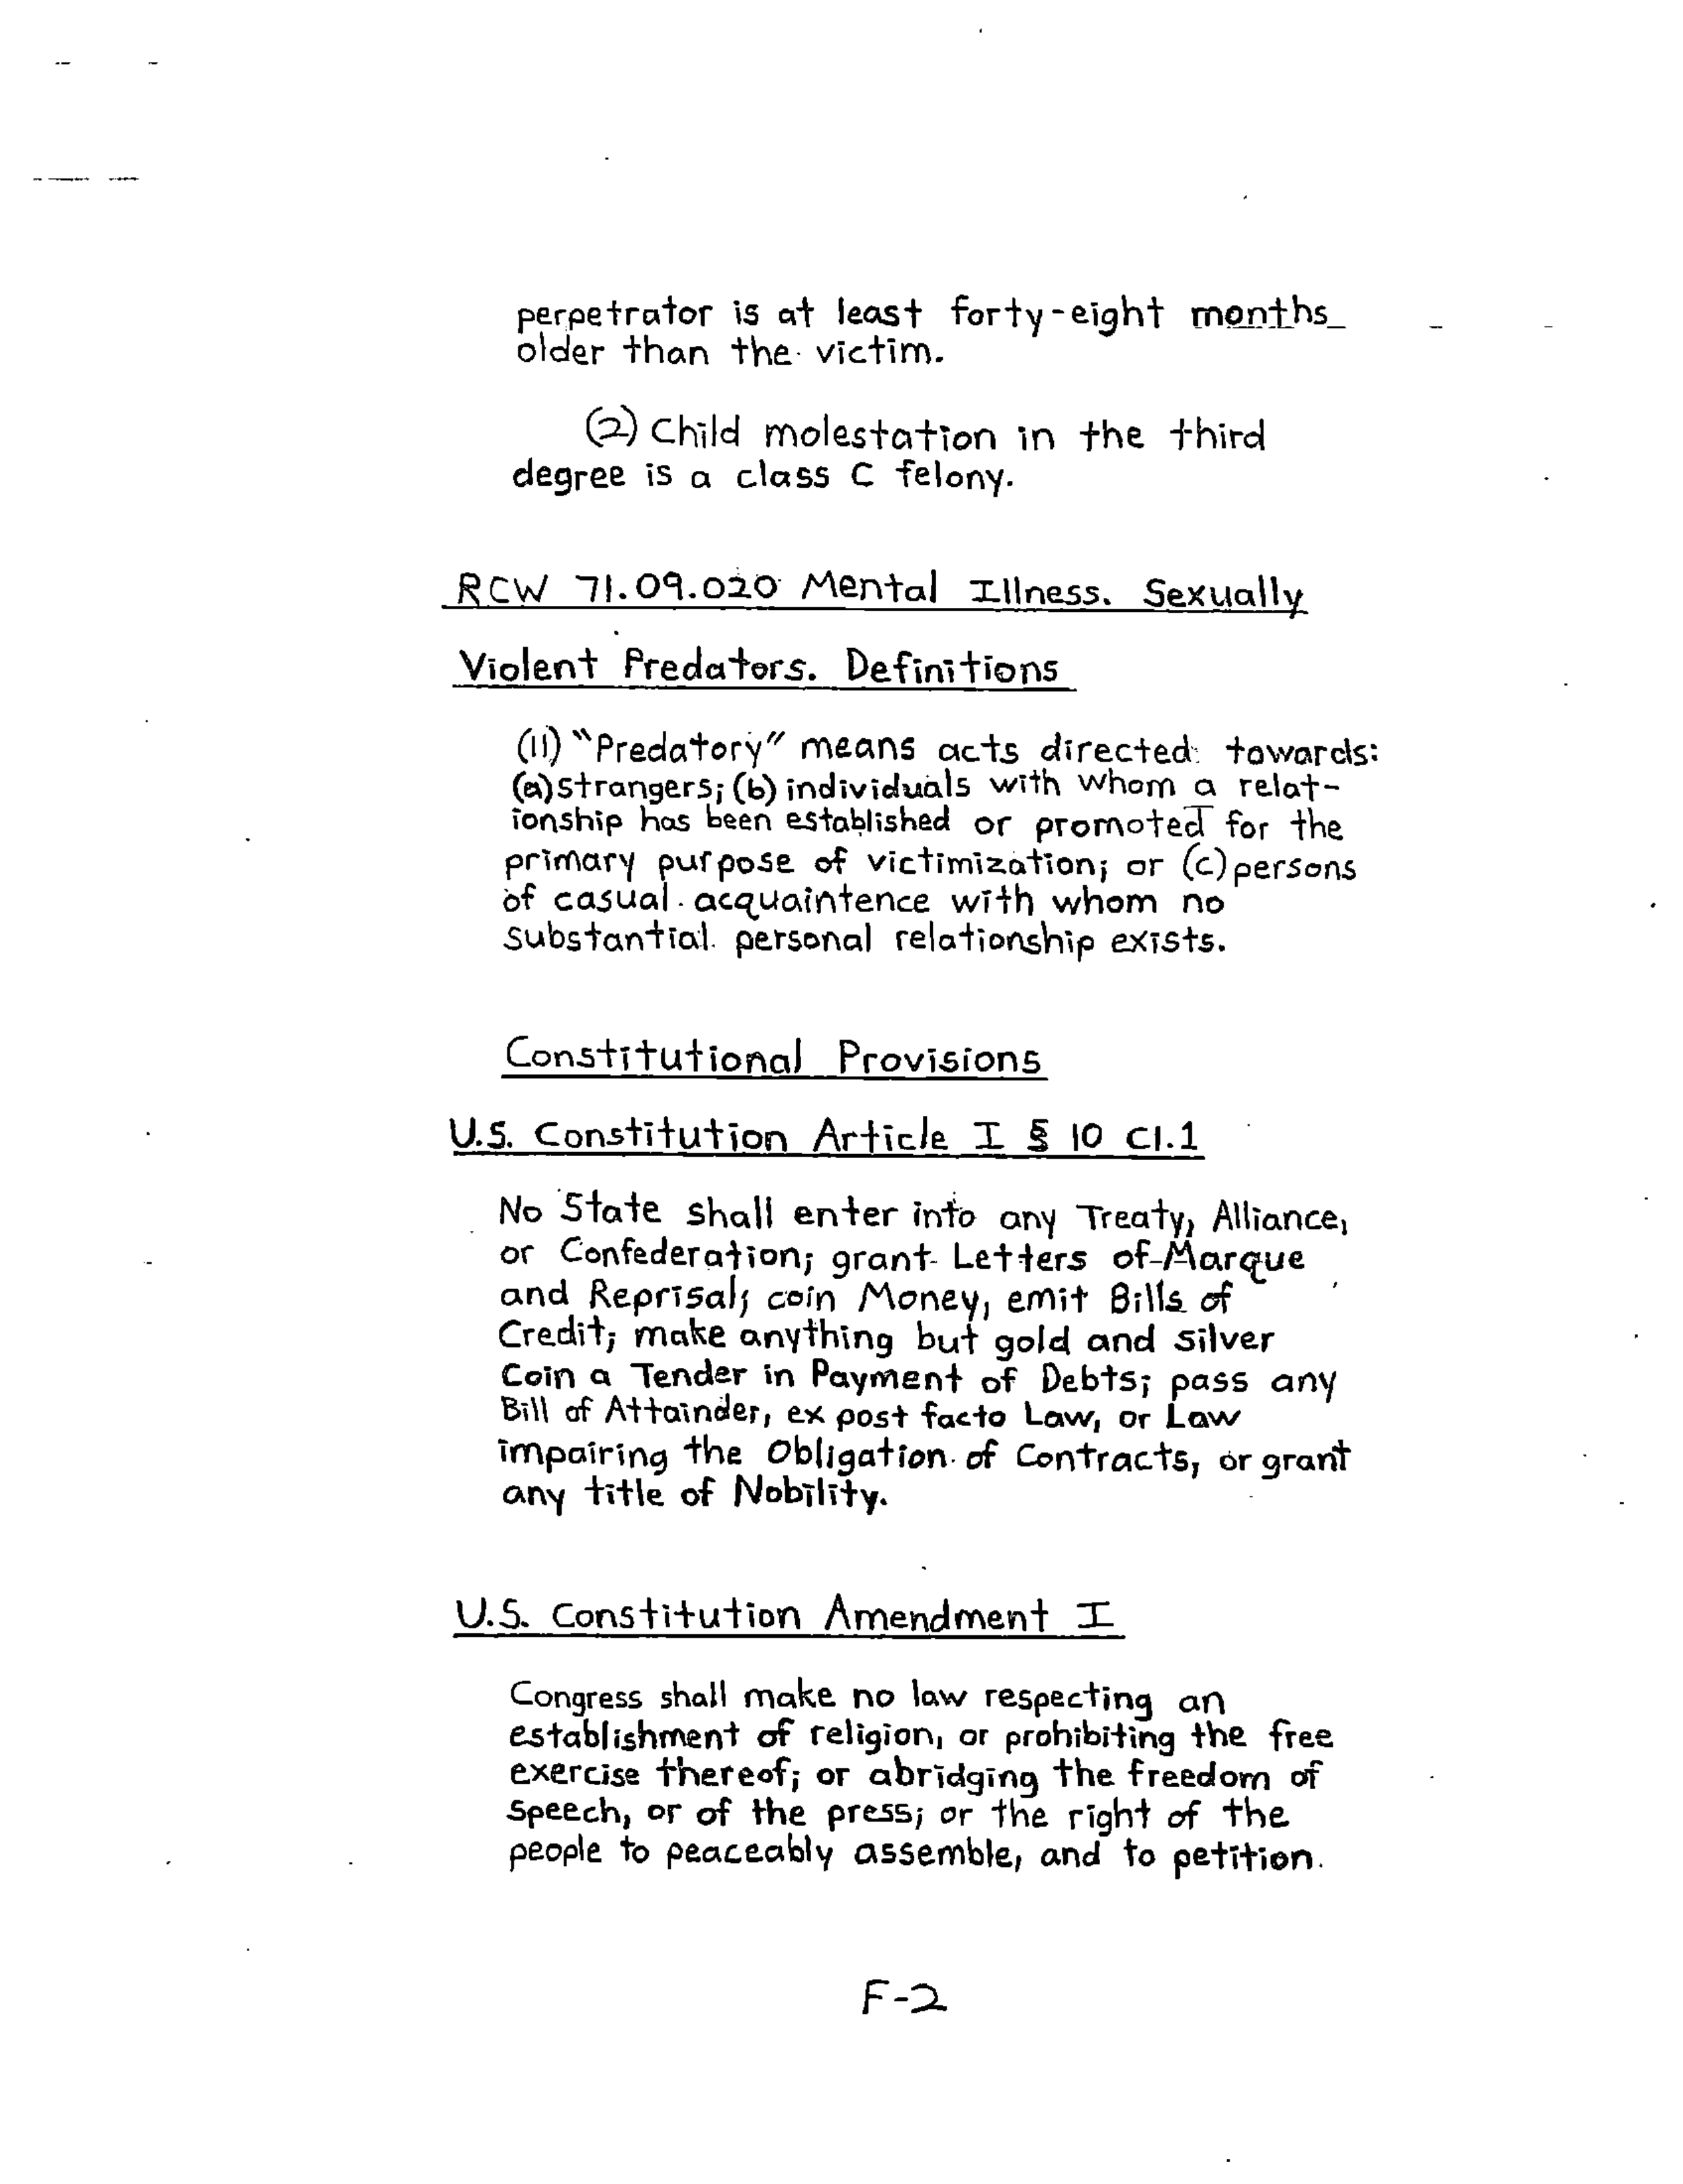 perpetrator is at least forty-eight months
older than the victim.
(2) Child molestation in the third
degree is a class C felony.
RCW 71.09.020 Mental Illness. Sexually
Violent Predators. Definitions
(11) "Predatory" means acts directed towards:
(a) strangers; (b) individuals with whom a relat-
ionship has been established or promoted for the
primary purpose of victimization; or (c) persons
of casual acquaintence with whom no
substantial personal relationship exists.
Constitutional Provisions
U.S. Constitution Article I § 10 Cl.1
No State shall enter into any Treaty, Alliance,
or Confederation; grant Letters of Marque
and Reprisal; coin Money, emit Bills of
Credit; make anything but gold and silver
Coin a Tender in Payment of Debts; pass any
Bill of Attainder, ex post facto Law, or Law
impairing the Obligation of Contracts, or grant
any title of Nobility.
U.S. Constitution Amendment I
Congress shall make no law respecting an
establishment of religion, or prohibiting the free
exercise thereof; or abridging the freedom of
speech, or of the press; or the right of the
people to peaceably assemble, and to petition.
F-2